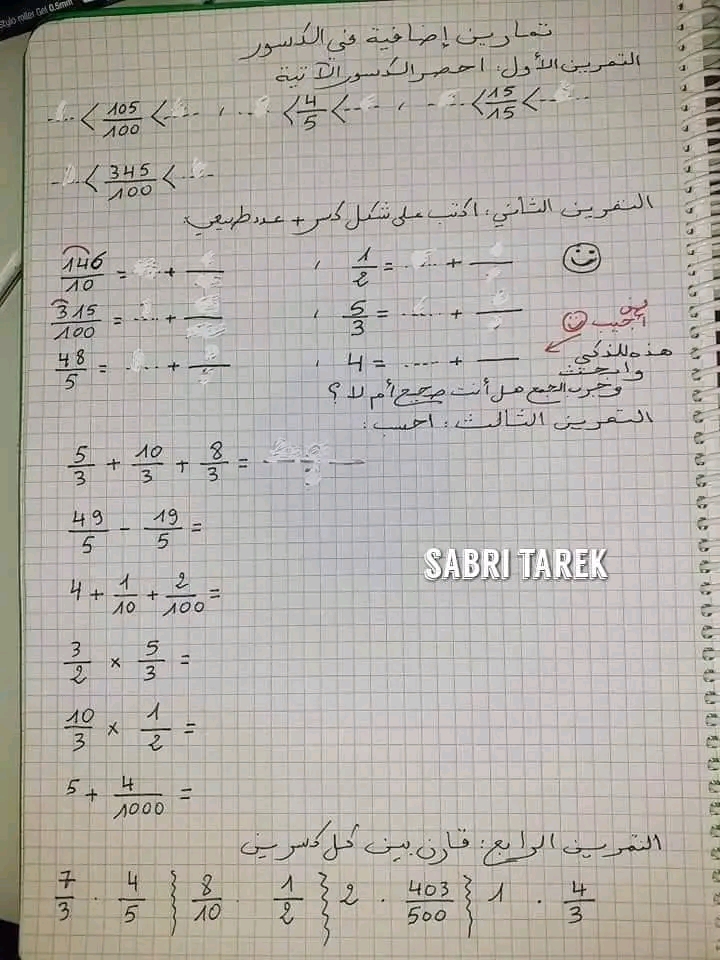 Stylo roller Gel 0.5mm
تمارين إضافية في الكسور
التمرين الأول: احصر الكسور الآتية
.... < 105/100 < .... ، .... < 4/5 < .... ، .... < 15/15 < ....
.... < 345/100 < ....
التمرين الثاني: اكتب على شكل كسر + عدد طبيعي:
146/10 = .... + — ، 1/2 = .... + —
315/100 = .... + — ، 5/3 = .... + —
48/5 = .... + — ، 4 = .... + —
هذه للذكي
وابحث
وجرب الجمع هل أنت صحيح أم لا؟
التمرين الثالث: احسب:
5/3 + 10/3 + 8/3 =
49/5 - 19/5 =
SABRI TAREK
4 + 1/10 + 2/100 =
3/2 × 5/3 =
10/3 × 1/2 =
5 + 4/1000 =
التمرين الرابع: قارن بين كل كسرين
7/3 . 4/5 } 8/10 . 1/2 } 2 . 403/500 } 1 . 4/3